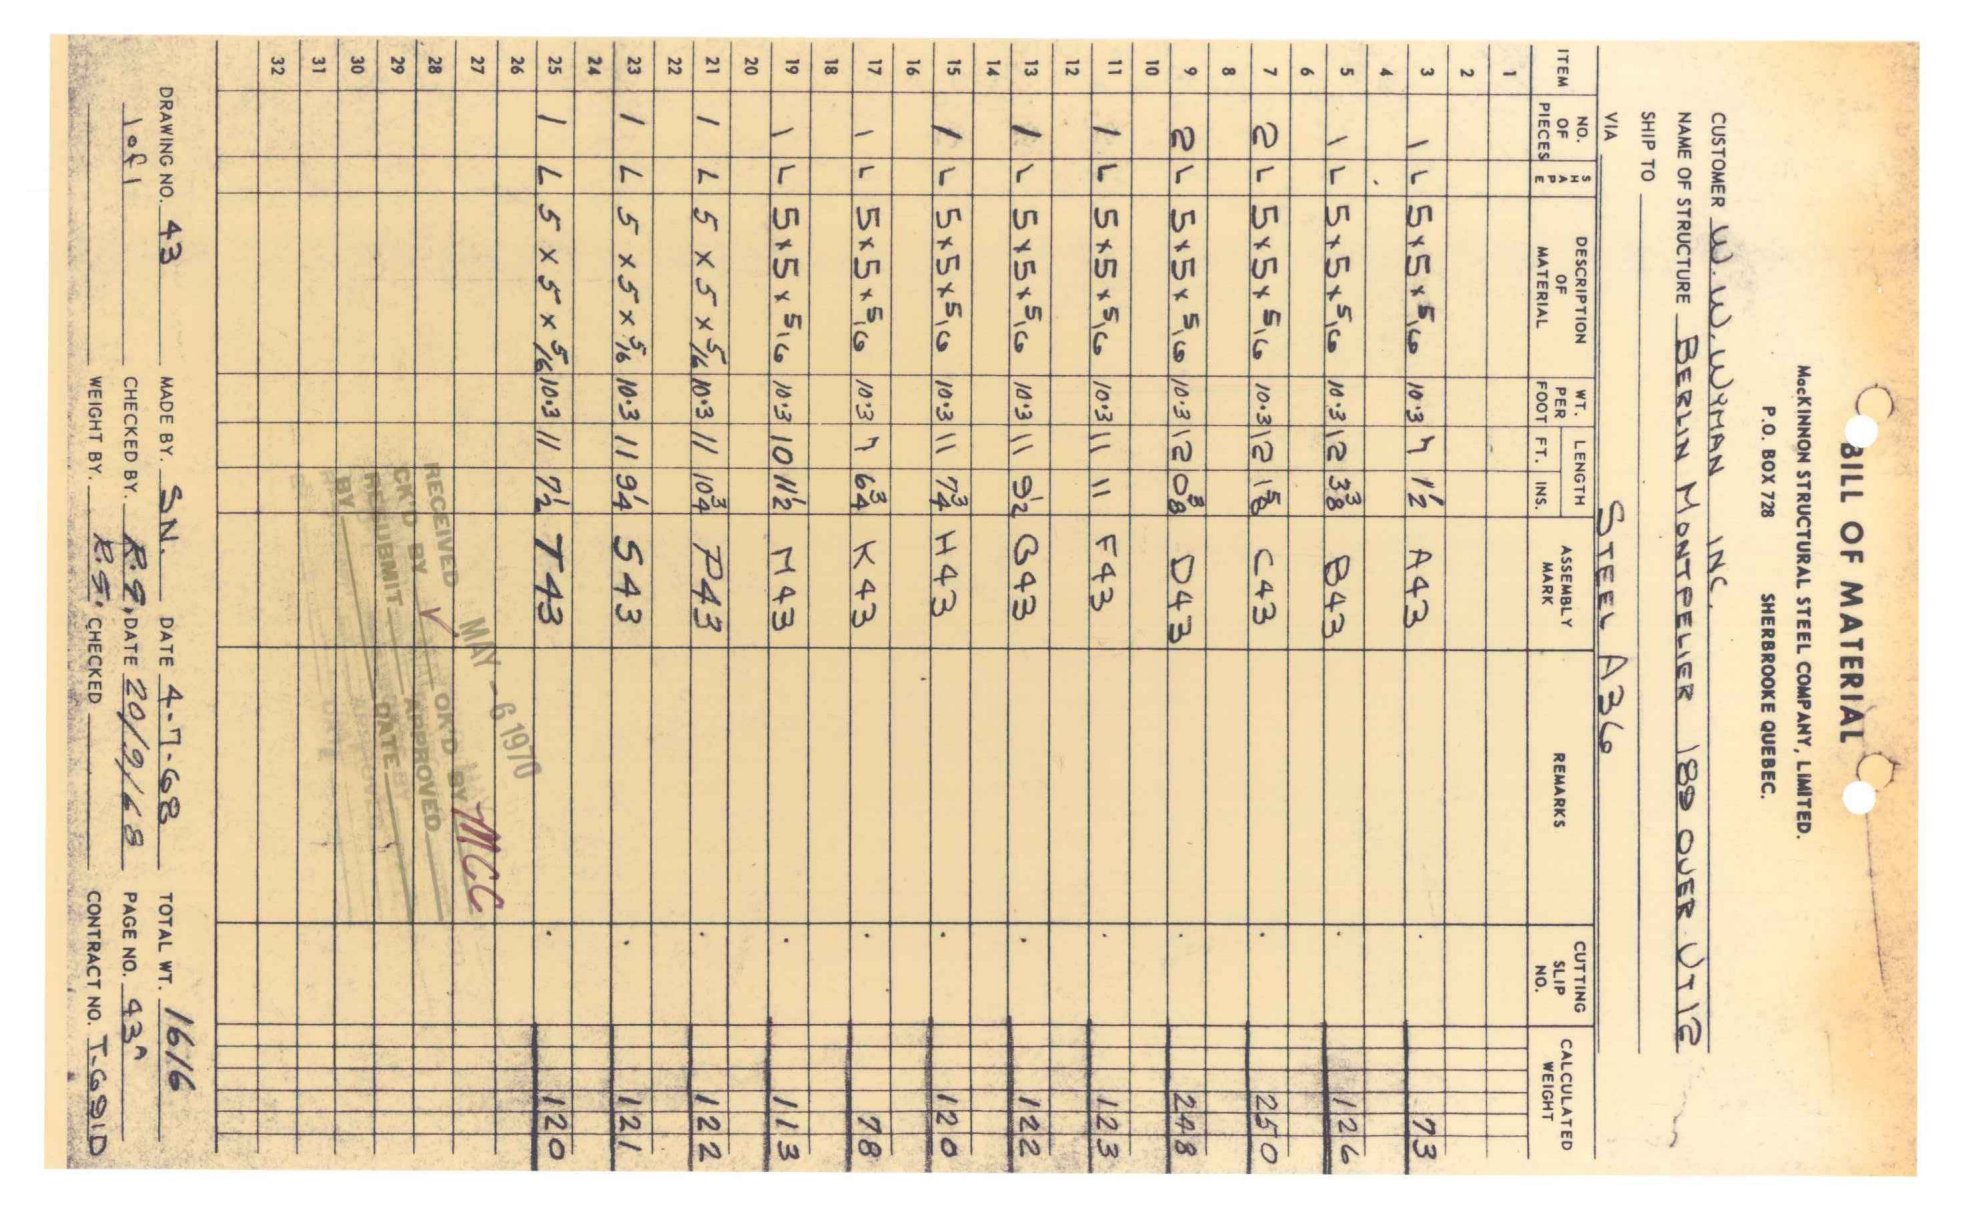 BILL OF MATERIAL
MacKINNON STRUCTURAL STEEL COMPANY, LIMITED.
P.O. BOX 728 SHERBROOKE QUEBEC.
CUSTOMER W.W. WYMAN INC.
NAME OF STRUCTURE BERLIN MONTPELIER 189 OVER UT12
SHIP TO
VIA STEEL A36
ITEM NO. OF PIECES SHAPE DESCRIPTION OF MATERIAL WT. PER FOOT LENGTH FT. INS. ASSEMBLY MARK REMARKS CUTTING SLIP NO. CALCULATED WEIGHT
1
2
3 1 L 5x5x5/16 10.3 7 1 1/2 A43 73
4
5 1 L 5x5x5/16 10.3 12 3 3/8 B43 126
6
7 2 L 5x5x5/16 10.3 12 1 5/8 C43 250
8
9 2 L 5x5x5/16 10.3 12 0 3/8 D43 248
10
11 1 L 5x5x5/16 10.3 11 11 F43 123
12
13 1 L 5x5x5/16 10.3 11 9 1/2 G43 122
14
15 1 L 5x5x5/16 10.3 11 7 3/4 H43 120
16
17 1 L 5x5x5/16 10.3 7 6 3/4 K43 78
18
19 1 L 5x5x5/16 10.3 10 11 1/2 M43 113
20
21 1 L 5x5x5/16 10.3 11 10 3/4 P43 122
22
23 1 L 5x5x5/16 10.3 11 9 1/4 S43 121
24
25 1 L 5x5x5/16 10.3 11 7 1/2 T43 120
26
27
28
29
30
31
32
MAY - 6 1970
RECEIVED
CK'D BY OK'D BY MCC
RESUBMIT APPROVED
BY DATE
DRAWING NO. 43 MADE BY. S.N. DATE 4-7-68 TOTAL WT. 1616
1 of 1 CHECKED BY. R.G. DATE 20/9/68 PAGE NO. 43A
WEIGHT BY. R.G. CHECKED CONTRACT NO. T-691D